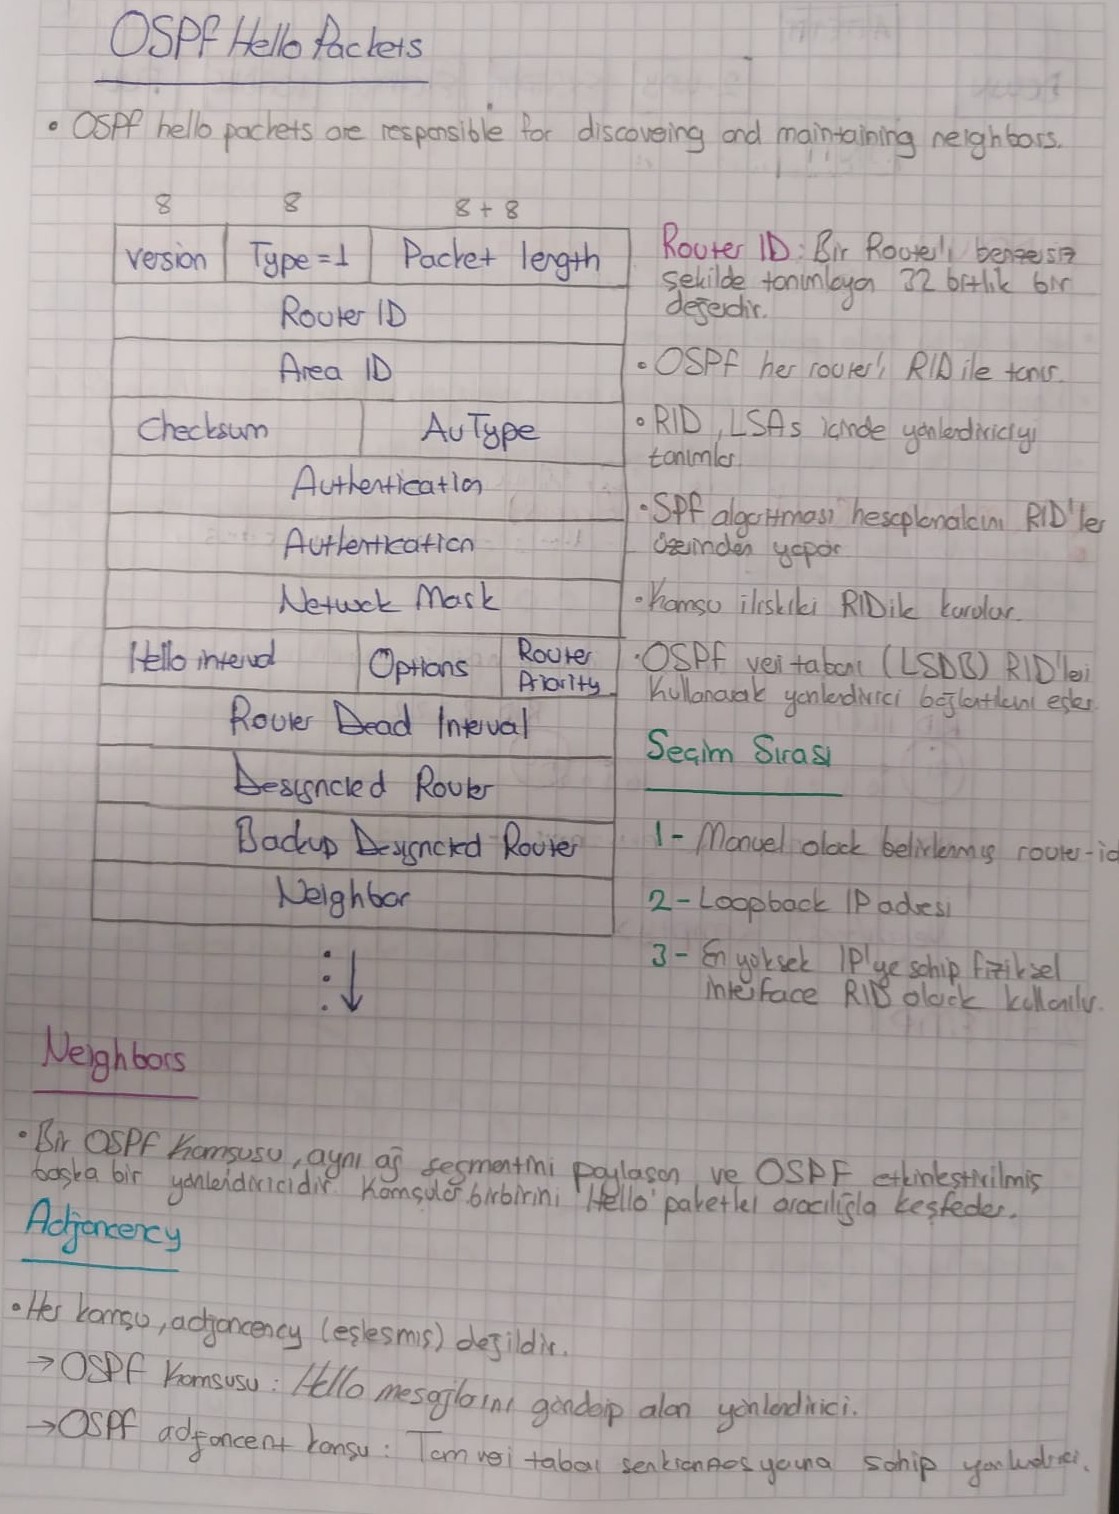 OSPF Hello Packets
• OSPF hello packets are responsible for discovering and maintaining neighbors.
8 8 8 + 8
Version Type=1 Packet length
Router ID
Area ID
Checksum AuType
Authentication
Authentication
Network Mask
Hello interval Options Router Priority
Router Dead Interval
Designated Router
Backup Designated Router
Neighbor
Router ID: Bir Router'ı benzersiz
şekilde tanımlayan 32 bitlik bir
değerdir.
• OSPF her router'ı RID ile tanır.
• RID, LSAs içinde yönlendiriciyi
tanımlar
• SPF algoritması hesaplamalarını RID'ler
üzerinden yapar
• Komşu ilişkiki RID ile kurulur.
• OSPF veri tabanı (LSDB) RID'leri
kullanarak yönlendirici bağlantılarını eşler.
Seçim Sırası
1- Manuel olarak belirlenmiş router-id
2- Loopback IP adresi
3- En yüksek IP'ye sahip fiziksel
interface RID olarak kullanılır.
Neighbors
• Bir OSPF Komşusu, aynı ağ segmentini paylaşan ve OSPF etkinleştirilmiş
başka bir yönlendiricidir. Komşular birbirini 'Hello' paketleri aracılığla keşfeder.
Adjancency
• Her komşu, adjancency (eşleşmiş) değildir.
→ OSPF Komşusu: Hello mesajlarını gönderip alan yönlendirici.
→ OSPF adjancent komşu: Tam veri tabanı senkronizasyonuna sahip yönlendirici.